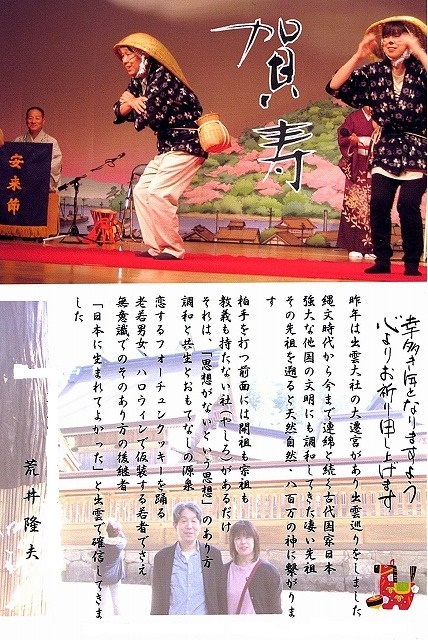 賀寿
安来節
幸多き年となりますよう
心よりお祈り申し上げます
昨年は出雲大社の大遷宮があり出雲巡りをしました
縄文時代から今まで連綿と続く古代国家日本
強大な他国の文明にも調和してきた凄い先祖
その先祖を遡ると天然自然・八百万の神に繋がりま
す
柏手を打つ前面には開祖も宗祖も
教義も持たない社(やしろ)があるだけ
それは、「思想がないという思想」のあり方
調和と共生とおもてなしの源泉
恋するフォーチュンクッキーを踊る
老若男女、ハロウィンで仮装する若者でさえ
無意識でのそのあり方の後継者
「日本に生まれてよかった」と出雲で確信してきま
した
荒井隆夫